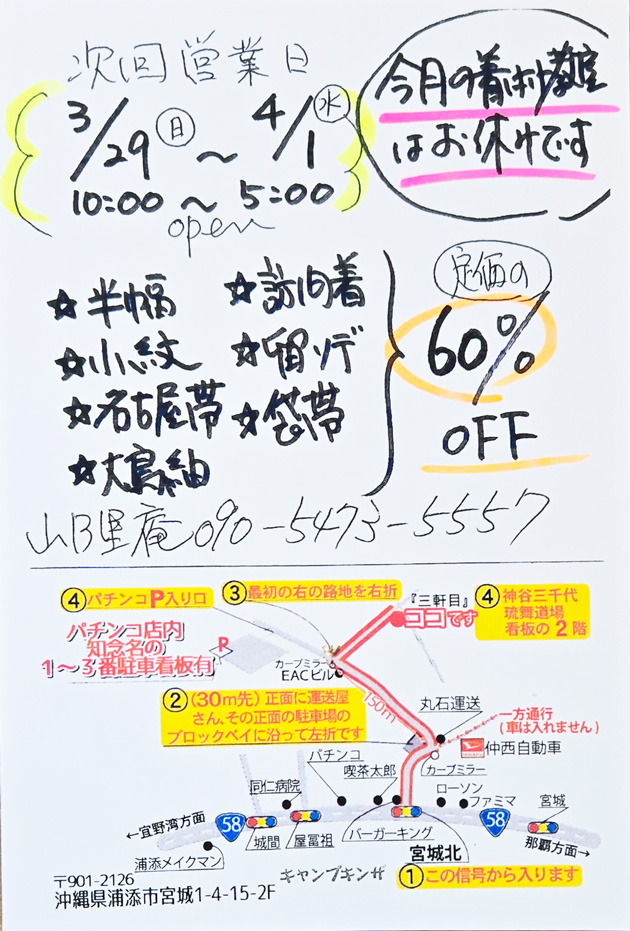 次回営業日
3/29 日 〜 4/1 水
10:00 〜 5:00
open
今月の着付教室
はお休みです
☆半幅
☆小紋
☆名古屋帯
☆大島紬
☆訪問着
☆留ソデ
☆袋帯
定価の
60%
OFF
090-5473-5557
④パチンコP入り口
③最初の右の路地を右折
『三軒目』
ココです
④神谷三千代
琉舞道場
看板の2階
パチンコ店内
知念名の
1〜3番駐車看板有
P
カーブミラー
EACビル
②(30m先)正面に運送屋
さん、その正面の駐車場の
ブロックベイに沿って左折です
150m
丸石運送
一方通行
(車は入れません)
仲西自動車
カーブミラー
パチンコ
喫茶太郎
同仁病院
ローソン
ファミマ
宮城
←宜野湾方面
58
城間
屋冨祖
バーガーキング
宮城北
58
那覇方面→
浦添メイクマン
キャンプキンザ
①この信号から入ります
〒901-2126
沖縄県浦添市宮城1-4-15-2F